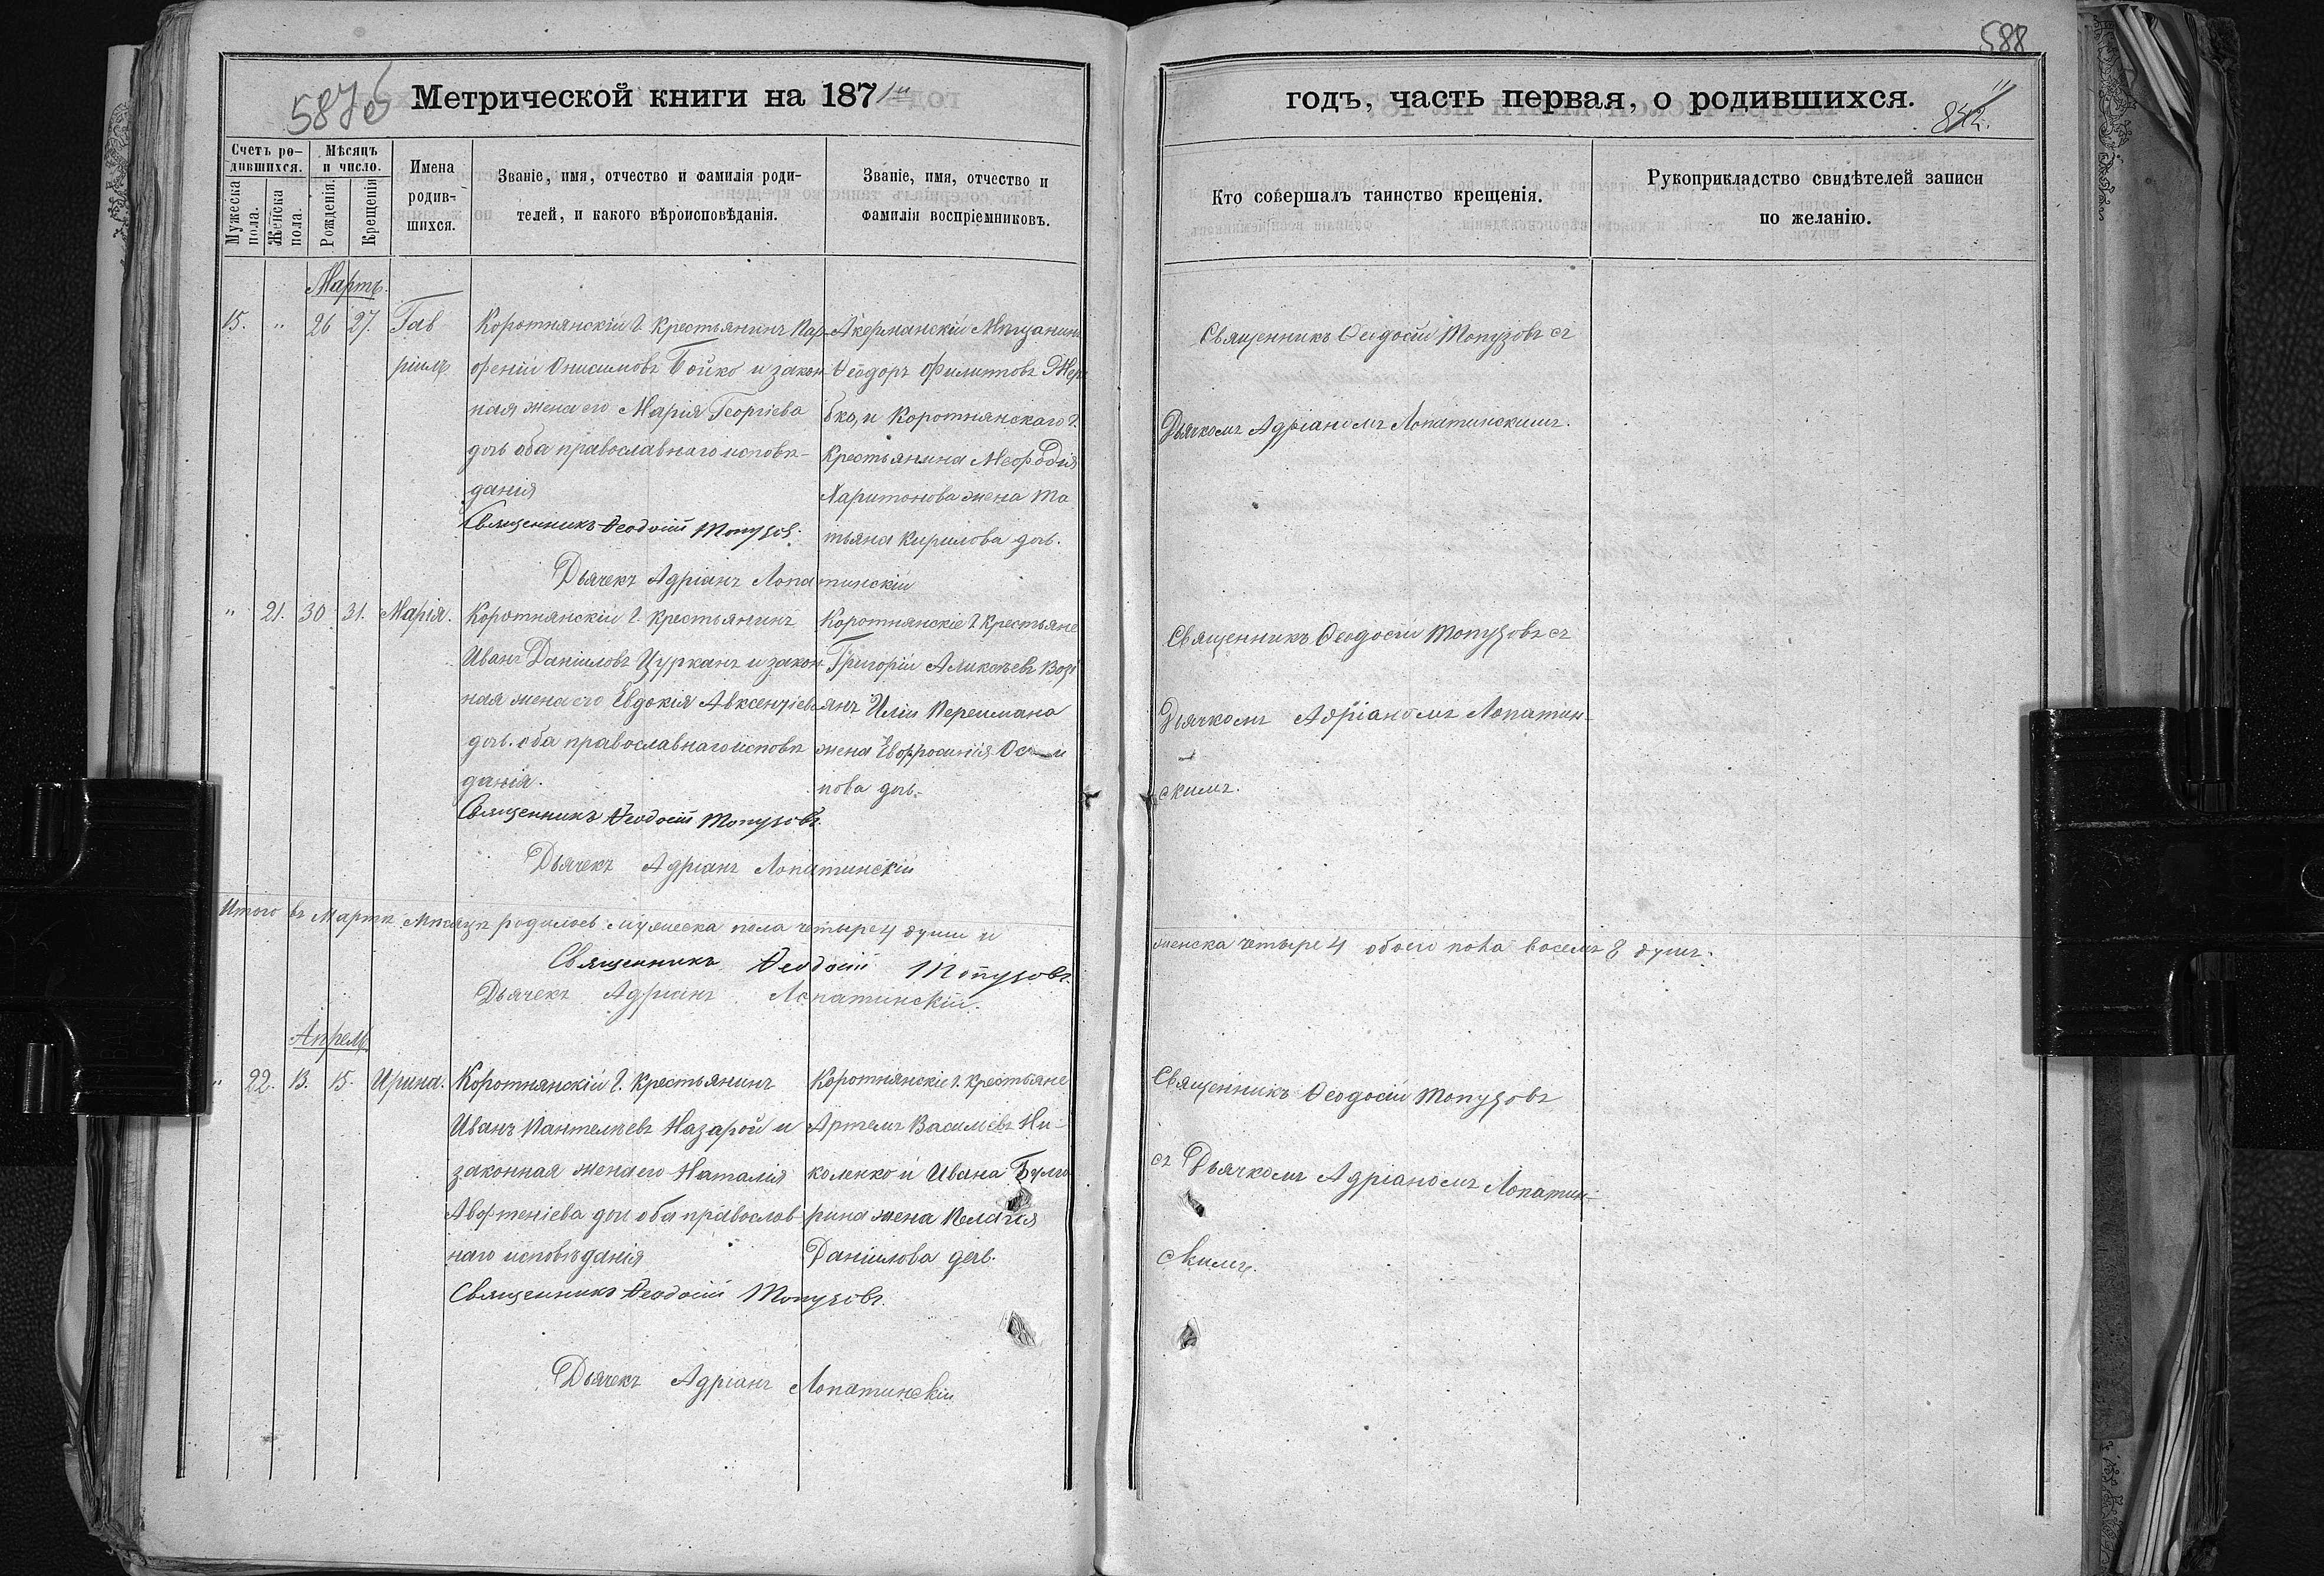 588
587 об
Метрической книги на 1871й
годъ, часть первая, о родившихся.
842.
Счетъ родившихся.
Мѣсяцъ и число.
Мужеска пола.
Женска пола.
Рожденія.
Крещенія.
Имена родив-
шихся.
Званіе, имя, отчество и фамилія роди-
телей, и какого вѣроисповѣданія.
Званіе, имя, отчество и
фамилія воспріемниковъ.
Кто совершалъ таинство крещенія.
Рукоприкладство свидѣтелей записи
по желанію.
Мартъ.
15. " 26 27. Гав
ріилъ.
Коротнянскій Крестьянинъ Пар-
феній Онисимовъ Бойко и закон
ная жена его Марія Георгіева
дочь оба православнаго исповѣ-
данія
Священникъ Ѳеодосій Топузовъ.
Дьячекъ Адріанъ Лопатинскій
Акерманскій Мѣщанинъ
Ѳеодоръ Филиповъ
и Коротнянскаго
Крестьянина Меѳодія
Харитонова жена Та
тьяна Кирилова дочь.
Священникъ Ѳеодосій Топузовъ съ
Дьячкомъ Адріаномъ Лопатинскимъ.
" 21. 30 31. Марія.
Коротнянскій Крестьянинъ
Иванъ Даніиловъ Цурканъ и закон
ная жена его Евдокія Авксентіева
дочь. оба православнаго исповѣ
данія.
Священникъ Ѳеодосій Топузовъ.
Дьячекъ Адріанъ Лопатинскій
Коротнянскіе Крестьяне
Григорій Алексѣевъ Воз
янъ Иліи Переимана
жена Евфросинія Оси
пова дочь.
Священникъ Ѳеодосій Топузовъ съ
Дьячкомъ Адріаномъ Лопатин-
скимъ.
Итого въ Мартѣ Мѣсяцѣ родилось мужеска пола четыре 4 души и
женска четыре 4 обоего пола восемь 8 душъ.
Священникъ Ѳеодосій Топузовъ.
Дьячекъ Адріанъ Лопатинскій.
Апрель
" 22. 13. 15. Ирина.
Коротнянскій Крестьянинъ
Иванъ Пантелѣевъ Назарой и
законная жена его Наталія
Авфтеніева дочь оба православ
наго исповѣданія
Священникъ Ѳеодосій Топузовъ.
Дьячекъ Адріанъ Лопатинскій
Коротнянскіе Крестьяне
Артемъ Василіевъ Ни-
коленко и Ивана Булга
рина жена Пелагія
Даніилова дочь.
Священникъ Ѳеодосій Топузовъ
съ Дьячкомъ Адріаномъ Лопатин-
скимъ.